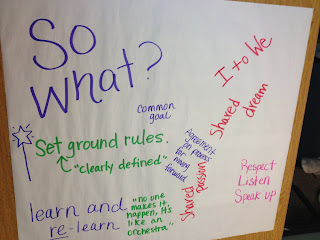 So
What?
I to We
Shared
dream
common
goal
Set ground rules.
"clearly defined"
Agreement
on process
for moving
forward
Shared
passion
Respect
Listen
Speak up
learn and
re-learn
"no one
makes it
happen, it's
like an
orchestra".